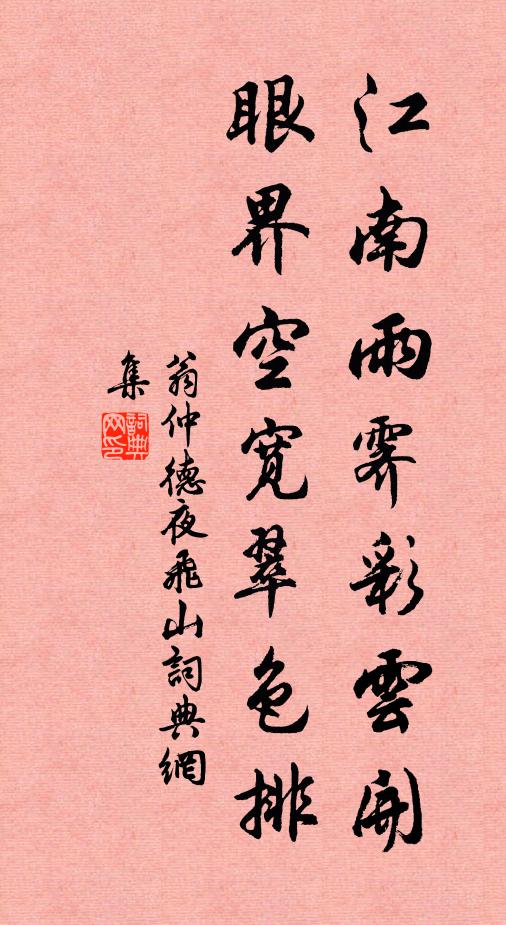 江南雨霽彩雲開
眼界空寬翠色排
翁仲德夜飛山詞典網
集
詞典網印